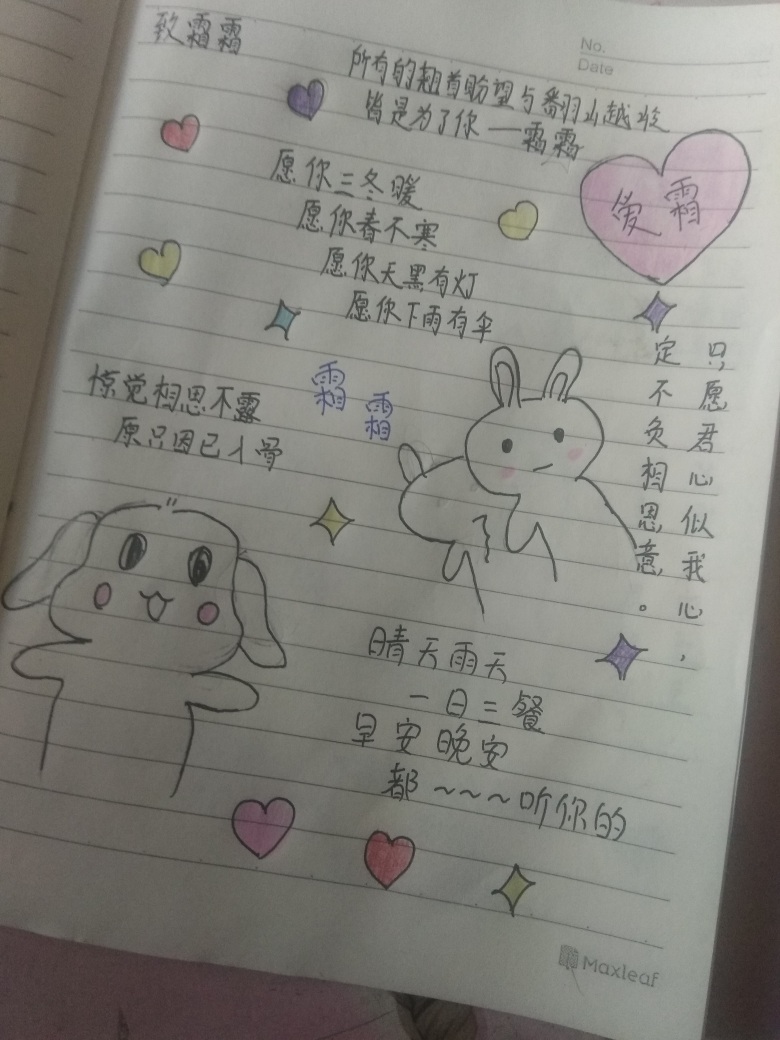 致霜霜
No.
Date
所有的翘首盼望与翻山越岭
皆是为了你 — 霜霜
愿你三冬暖
愿你春不寒
愿你天黑有灯
愿你下雨有伞
爱霜
惊觉相思不露
原只因已入骨
霜霜
只愿君心似我心，
定不负相思意。
晴天雨天
一日三餐
早安晚安
都~~~听你的
Maxleaf